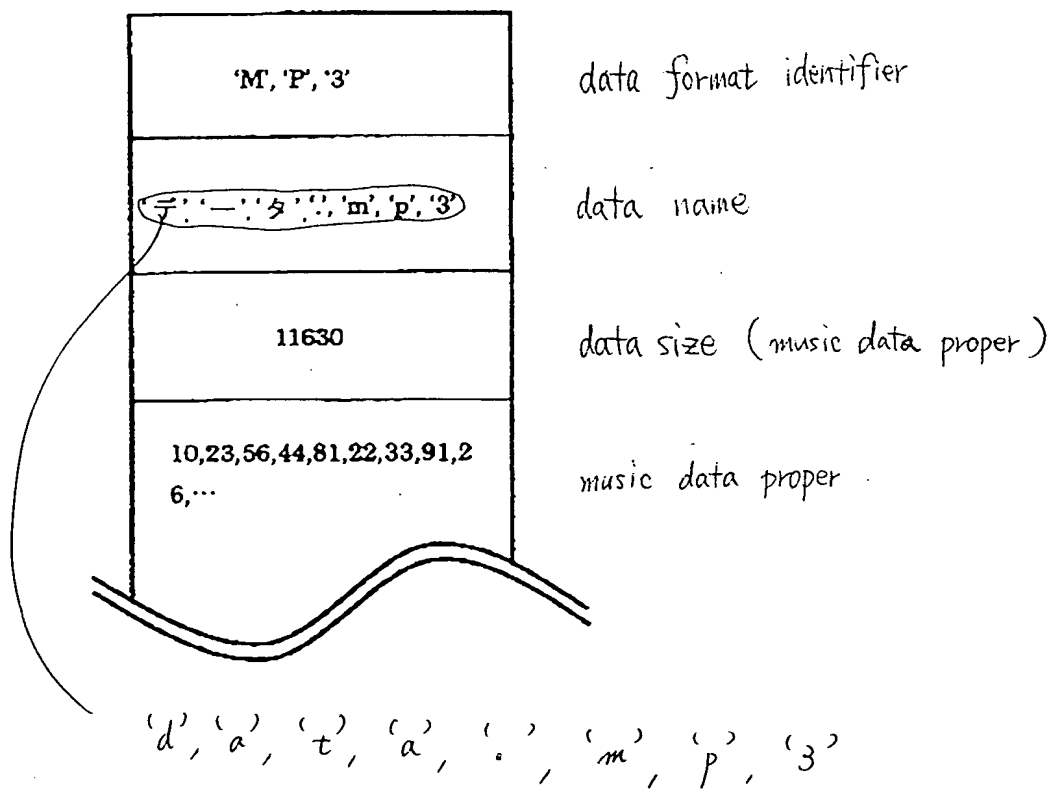 'M', 'P', '3' data format identifier
'デ', 'ー', 'タ', '.', 'm', 'p', '3' data name
11630 data size (music data proper)
10,23,56,44,81,22,33,91,2
6,… music data proper
'd', 'a', 't', 'a', '.', 'm', 'p', '3'